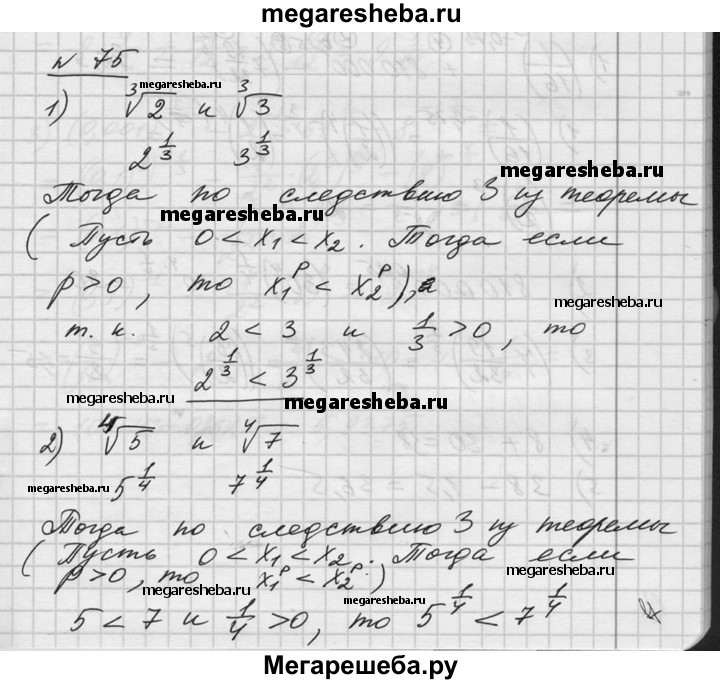 megaresheba.ru
№ 75
megaresheba.ru
1) ∛2 и ∛3
2^(1/3) 3^(1/3)
megaresheba.ru
Тогда по следствию 3 из теоремы
megaresheba.ru
( Пусть 0 < x₁ < x₂. Тогда если
p > 0, то x₁^p < x₂^p ),
megaresheba.ru
т. к. 2 < 3 и 1/3 > 0, то
2^(1/3) < 3^(1/3)
megaresheba.ru
megaresheba.ru
2) ∜5 и ∜7
megaresheba.ru
5^(1/4) 7^(1/4)
Тогда по следствию 3 из теоремы
( Пусть 0 < x₁ < x₂. Тогда если
megaresheba.ru
p > 0, то x₁^p < x₂^p. )
megaresheba.ru
megaresheba.ru
5 < 7 и 1/4 > 0, то 5^(1/4) < 7^(1/4)
Мегарешеба.ру